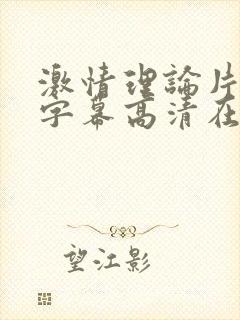 激情理論片
字幕高清在
望江影